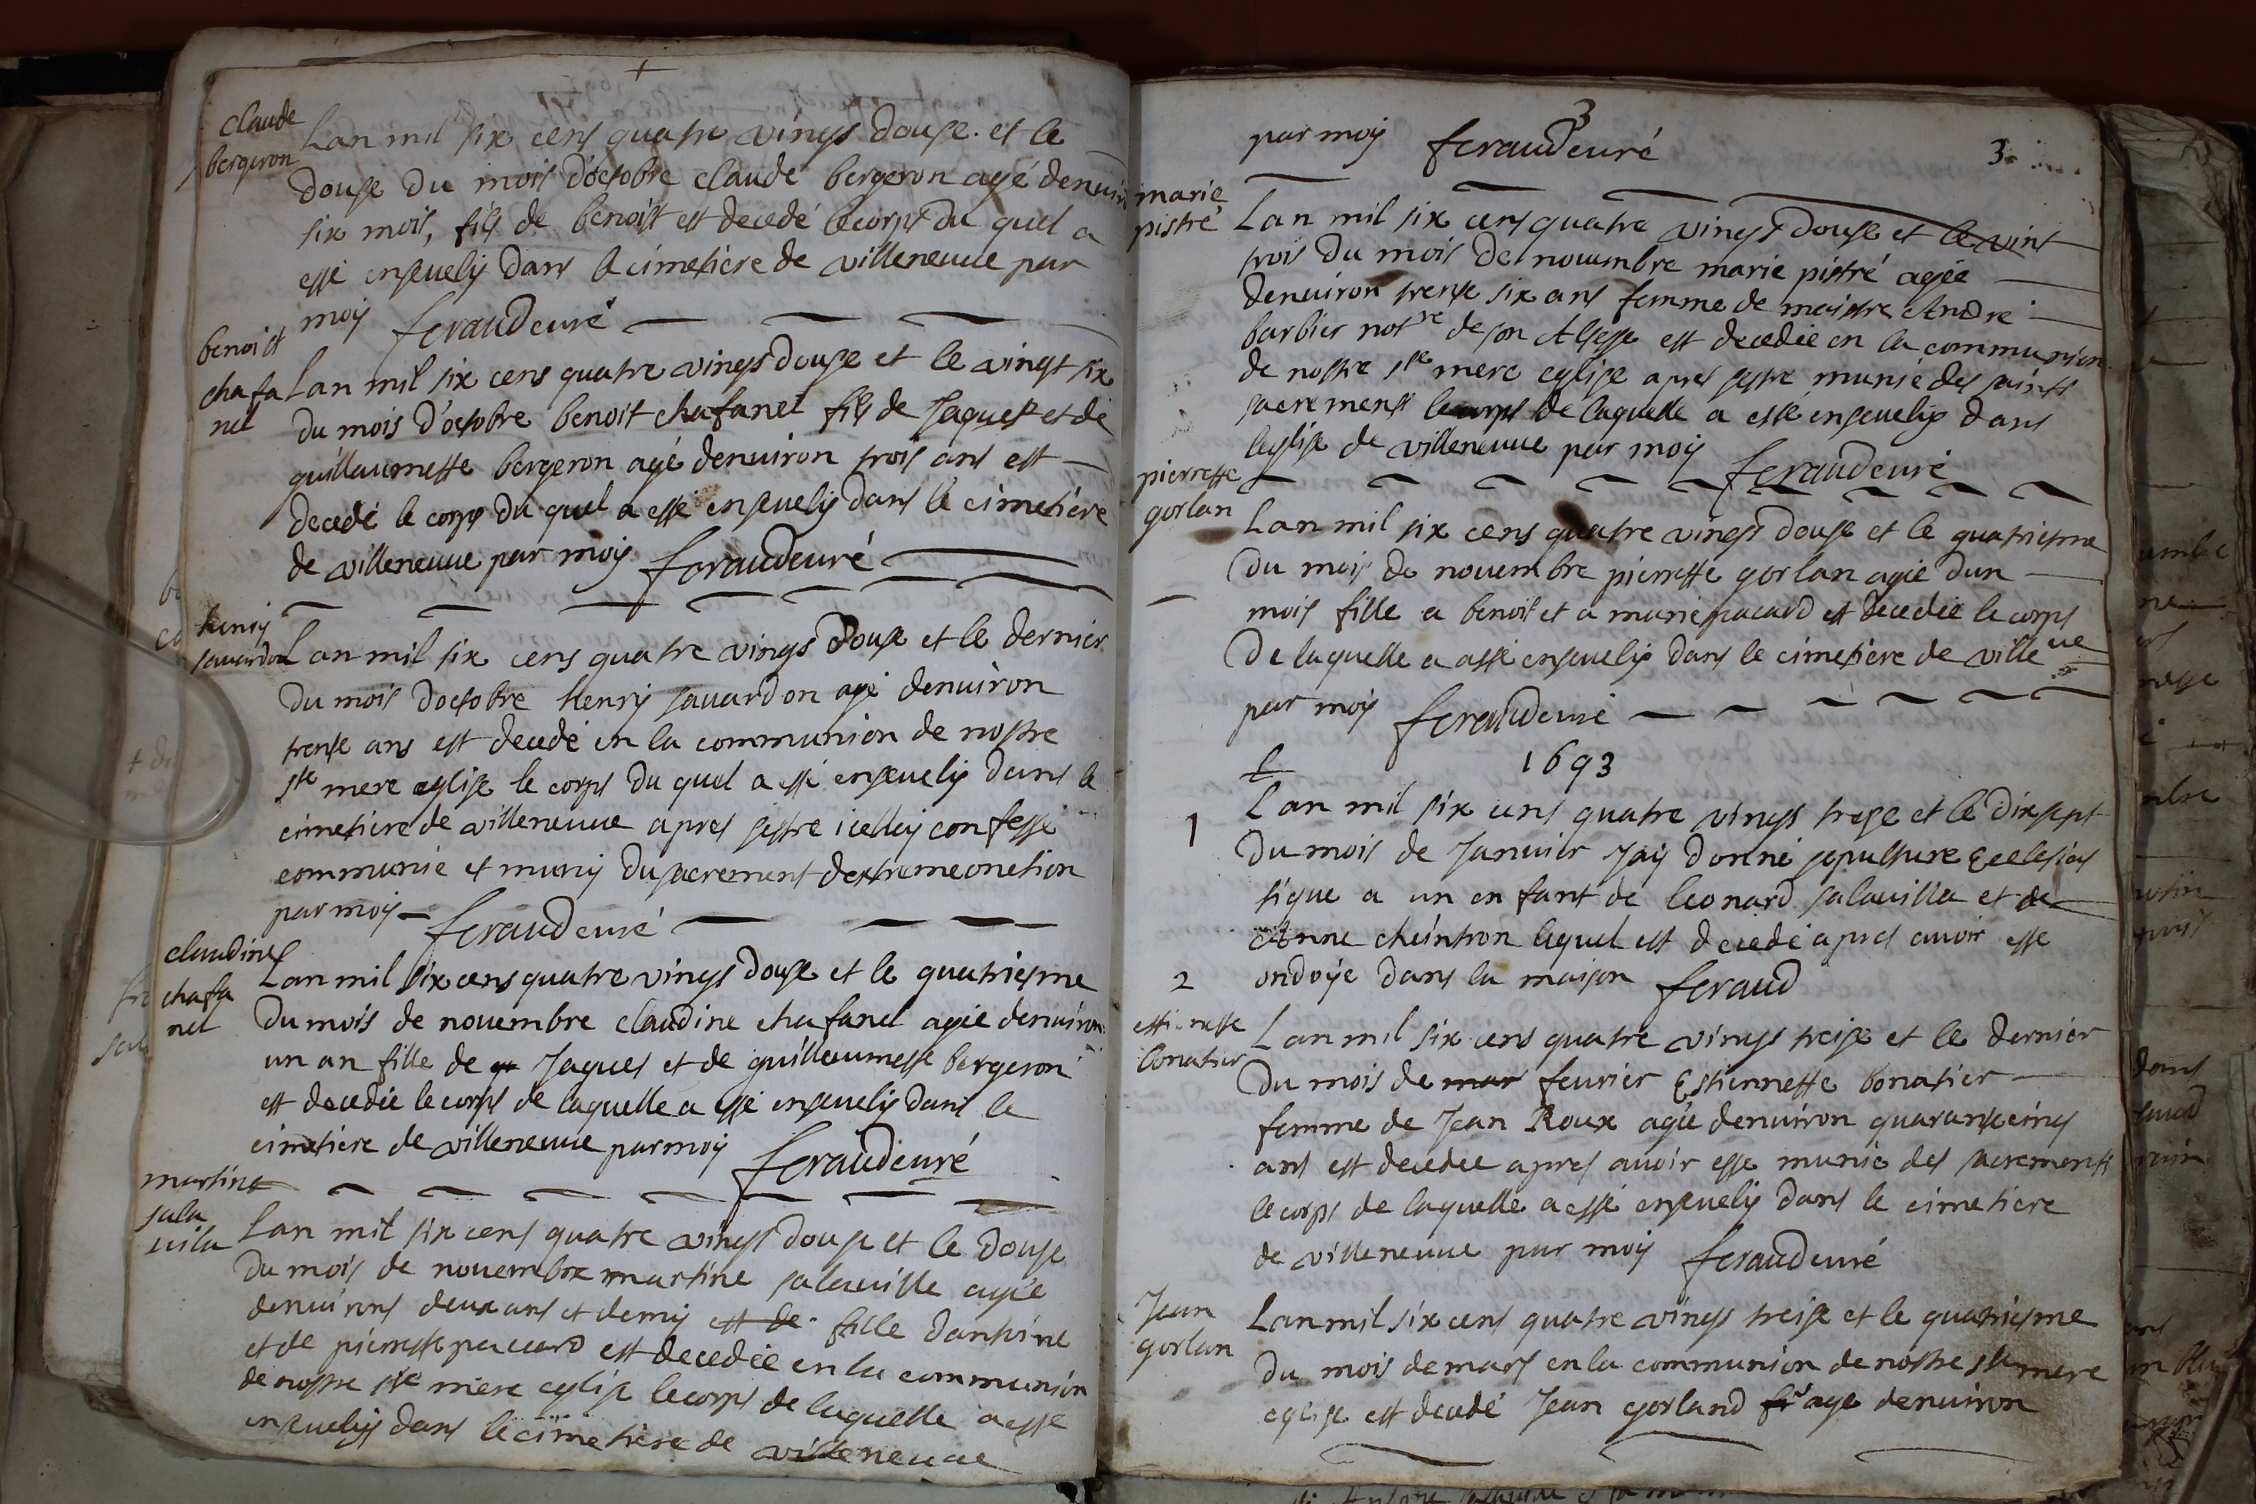 claude
bergeron
Lan mil six cens quatre vings douse. et le
douse du mois d'octobre claude bergeron agé denuiro
six mois, fils de benoist est decedé le corps du quel a
esté enseuely dans le cimetiere de villeneuue par
moy feraud curé
benoist
chafa
nel
Lan mil six cens quatre vings douse et le vingt six
du mois d'octobre benoit chafanel fils de Jaques et de
guillaumette bergeron agé denuiron trois ans est
decedé le corps du quel a esté enseuely dans le cimetiére
de villeneuue par moy feraud curé
henry
sauardon
Lan mil six cens quatre vings douse et le dernier
du mois doctobre henry sauardon agé denuiron
trente ans est decedé en la communion de nostre
ste mere eglise le corps du quel a esté enseuely dans le
cimetiere de villeneuue apres sestre icelluy confessé
communié et muny du sacrement dextremeonction
par moy feraud curé
claudine
chafa
nel
Lan mil six cens quatre vings douse et le quatriesme
du mois de nouembre claudine chafanel agée denuiron
un an fille de Jaques et de guillaumette bergeron
est decedée le corps de laquelle a esté enseuely dans le
cimetiere de villeneuue par moy feraud curé
martine
sala
uila
Lan mil six cens quatre vings douse et le douse
du mois de nouembre martine salauille agée
denuirons deux ans et demy est de fille dantoine
et de pierrette paccard est decedée en la communion
de nostre ste mere eglise le corps de laquelle a esté
enseuely dans le cimetiere de villeneuue
3
par moy feraud curé
3
marie
pistré
Lan mil six cens quatre vings douse et le vint
trois du mois de nouembre marie pistré agée
denuiron trente six ans femme de maistre André
barbier notre de son Altesse est decedée en la communion
de nostre ste mere eglise apres sestre munie des saints
sacremens le corps de laquelle a esté enseuely dans
leglise de villeneuue par moy feraud curé
pierrette
gorlan
Lan mil six cens quatre vings douse et le quatriesme
du mois de nouembre pierrette gorlan agée dun
mois fille a benoit et a marie pacard est decedée le corps
de laquelle a asté enseuely dans le cimetiere de villeue
par moy feraud curé
1693
1
Lan mil six cens quatre vings trese et le dixsept
du mois de Januier Jay donné sepulture Ecclesias
tique a un enfant de leonard salauilla et de
anne cheintron lequel est decedé apres auoir esté
ondoyé dans la maison feraud
2
estienette
bonatier
Lan mil six cens quatre vings treise et le dernier
du mois de mar feurier Estiennette bonatier
femme de Jean Roux agée denuiron quarante cinq
ans est decedée apres auoir esté munie des sacrements
le corps de laquelle a esté enseuely dans le cimetiere
de villeneuue par moy feraud curé
Jean
gorlan
Lan mil six cens quatre vings treise et le quatriesme
du mois de mars en la communion de nostre ste mere
eglise est decedé Jean gorland agé denuiron